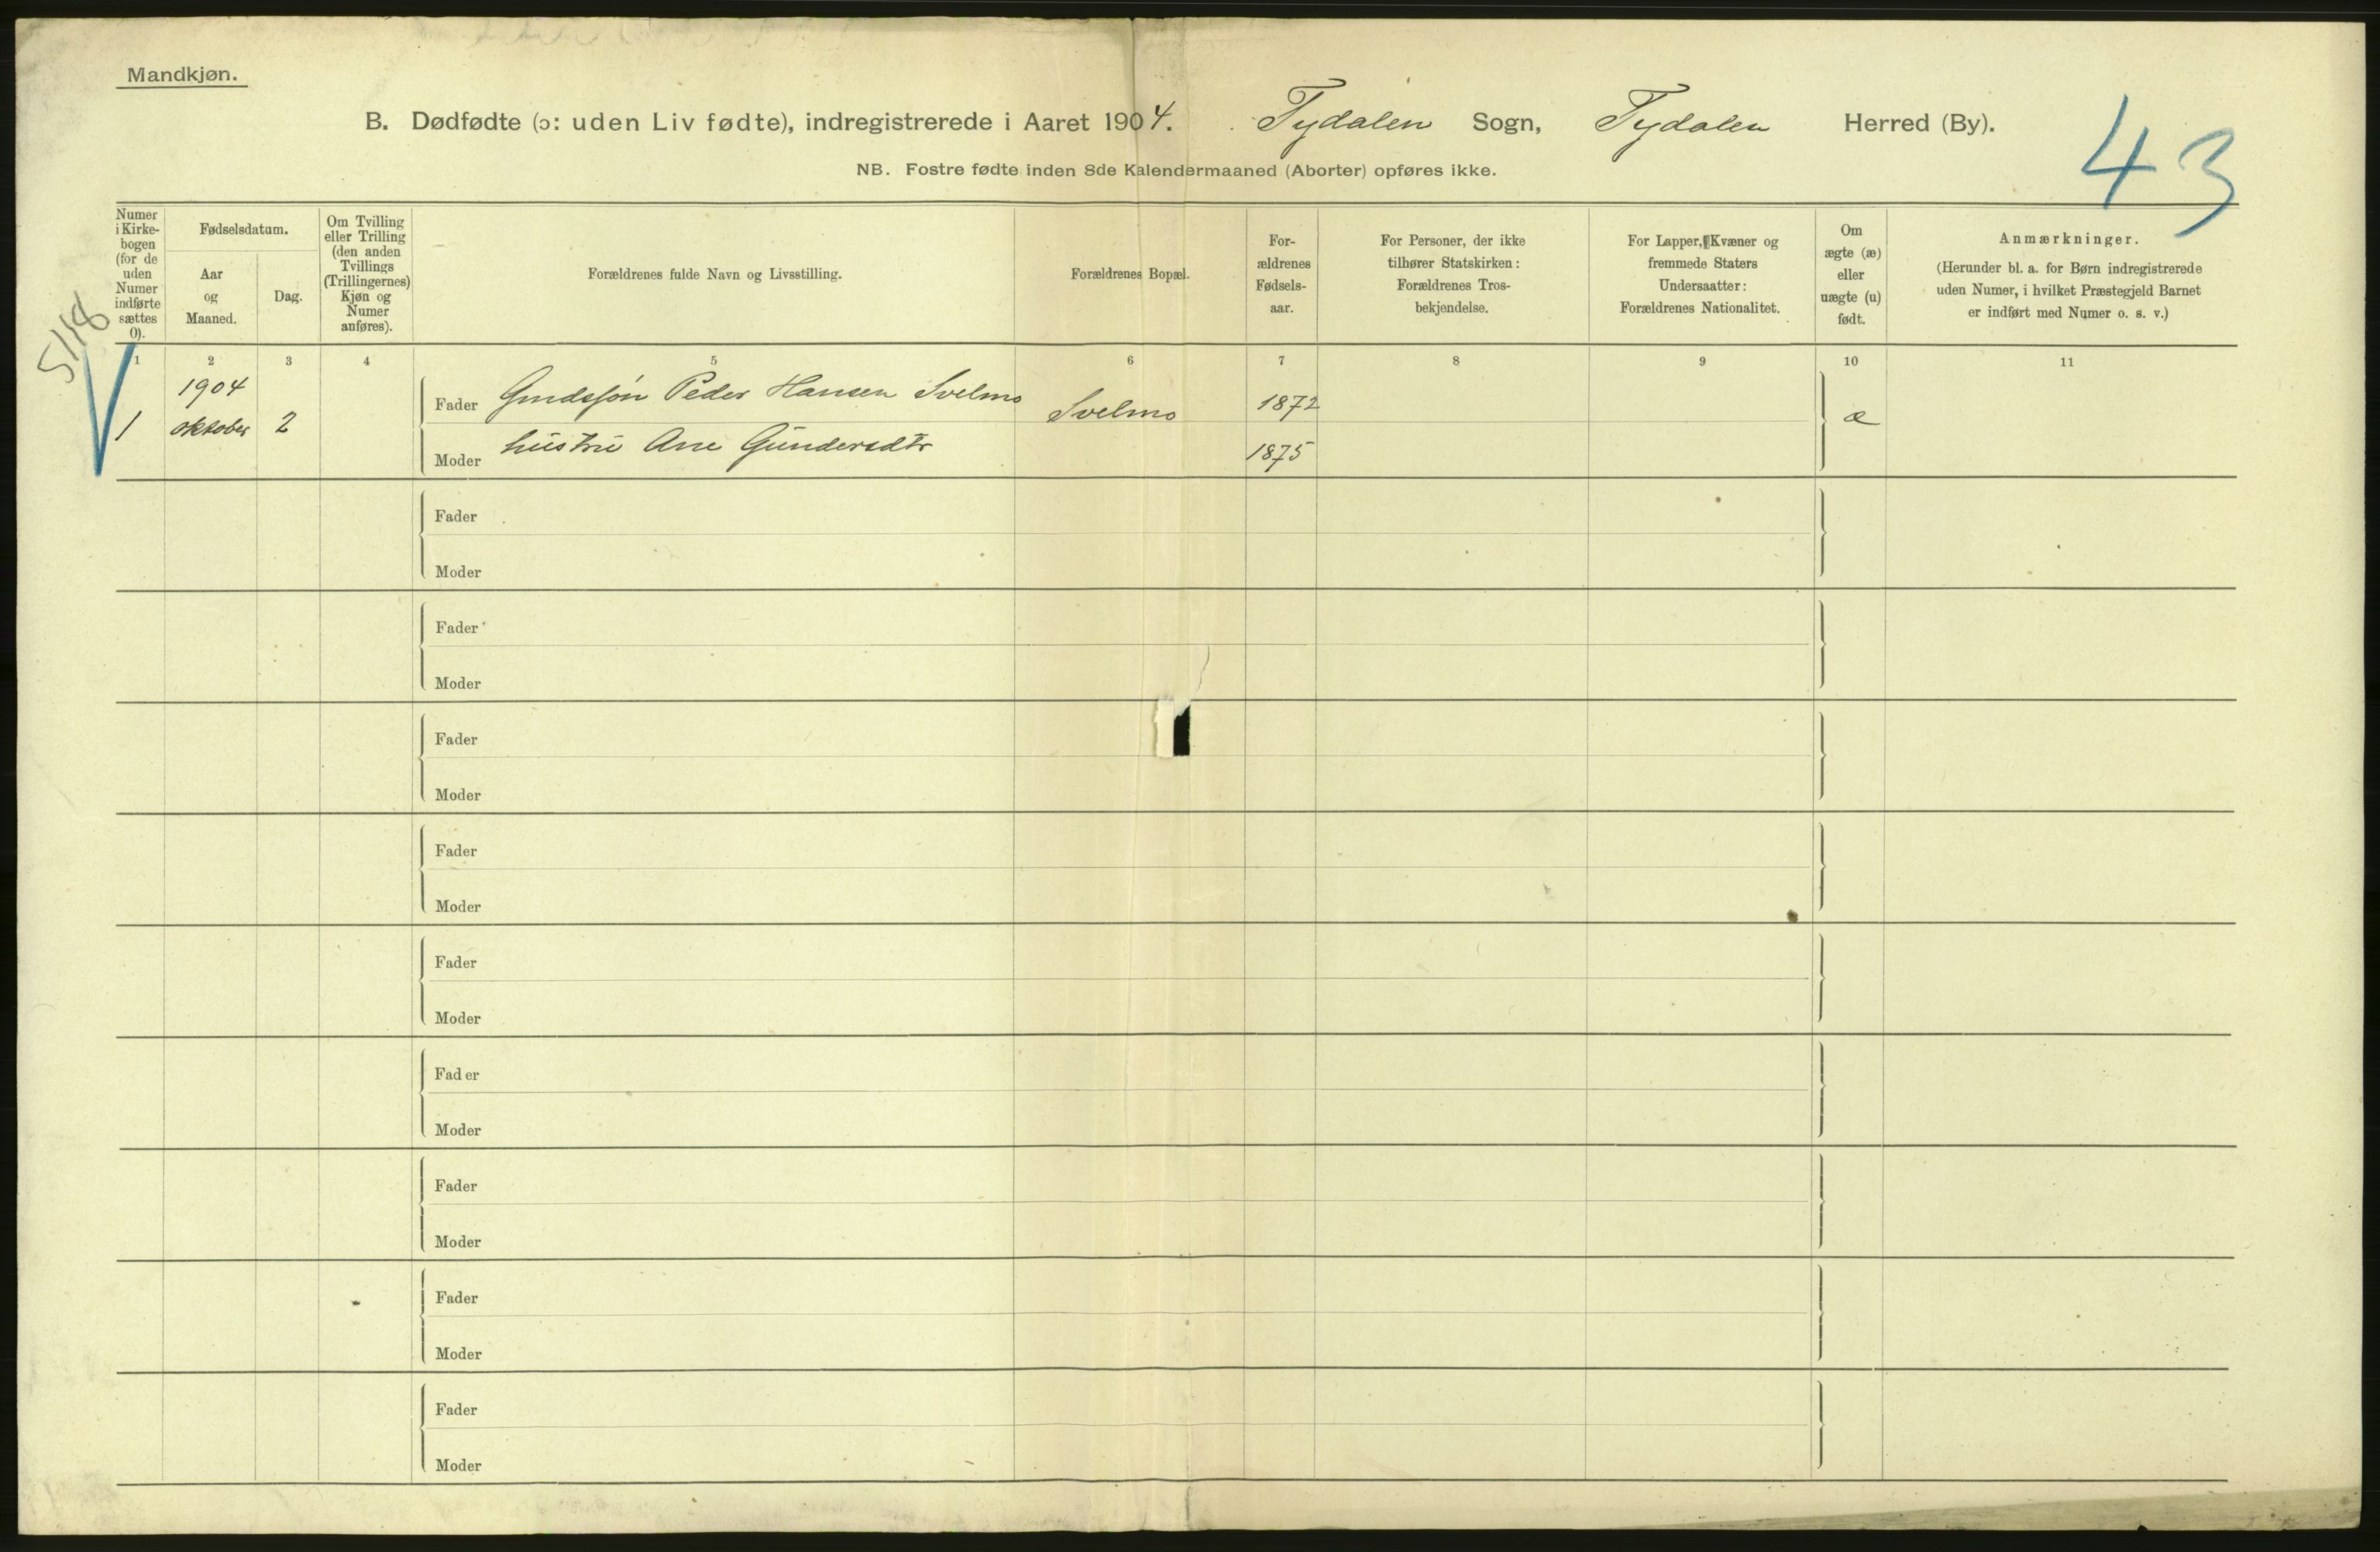 Mandkjøn.
B. Dødfødte (ɔ: uden Liv fødte), indregistrerede i Aaret 1904. Tydalen Sogn, Tydalen Herred (By).
43
NB. Fostre fødte inden 8de Kalendermaaned (Aborter) opføres ikke.
Numer
i Kirke-
bogen
(for de
uden
Numer
indførte
sættes
0).
Fødselsdatum.
Aar
og
Maaned.
Dag.
Om Tvilling
eller Trilling
(den anden
Tvillings
(Trillingernes)
Kjøn og
Numer
anføres).
Forældrenes fulde Navn og Livsstilling.
Forældrenes Bopæl.
For-
ældrenes
Fødsels-
aar.
For Personer, der ikke
tilhører Statskirken:
Forældrenes Tros-
bekjendelse.
For Lapper, Kvæner og
fremmede Staters
Undersaatter:
Forældrenes Nationalitet.
Om
ægte (æ)
eller
uægte (u)
født.
Anmærkninger.
(Herunder bl. a. for Børn indregistrerede
uden Numer, i hvilket Præstegjeld Barnet
er indført med Numer o. s. v.)
5118
1 2 3 4 5 6 7 8 9 10 11
1904
1 oktober 2
Fader Peder Hansen Svelmo Svelmo 1872 æ
Moder hustru Ane Gundersdtr 1875
Fader
Moder
Fader
Moder
Fader
Moder
Fader
Moder
Fader
Moder
Fader
Moder
Fader
Moder
Fader
Moder
Fader
Moder